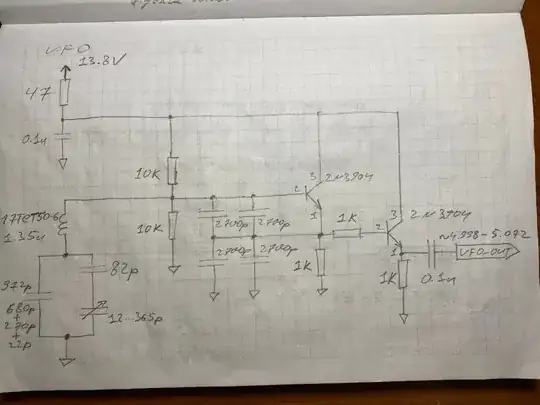 VFO
13.8V
47
0.1u
10K
10K
17T CT50-6
1.35u
2700p
2700p
2700p
2700p
3
2
1
2N3904
1K
1K
3
2
1
2N3904
~4.998-5.072
VFO_OUT
0.1u
1K
972p
680p
+
270p
+
22p
82p
12...365p